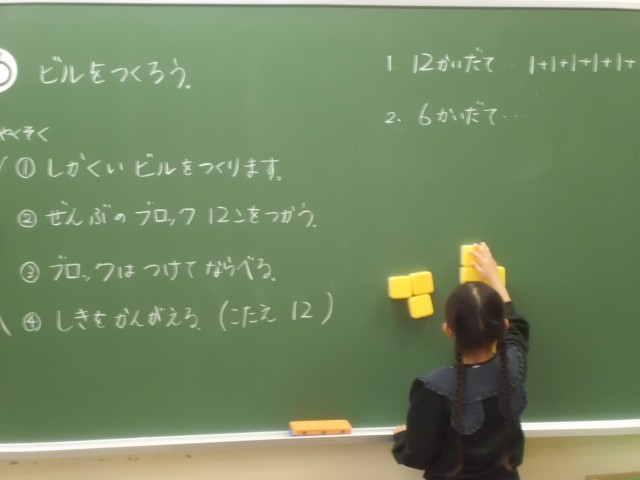 ビルをつくろう。
やくそく
① しかくいビルをつくります。
② ぜんぶのブロック12こをつかう。
③ ブロックはつけてならべる。
④ しきをかんがえる。(こたえ 12)
1. 12かいだて… 1+1+1+1+1+
2. 6かいだて…